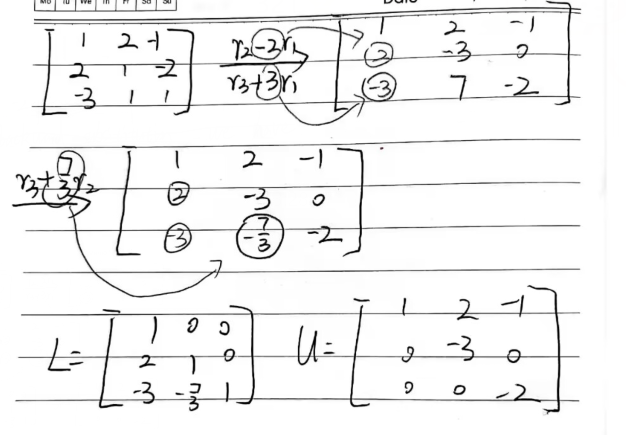 Mo Tu We Th Fr Sa Su
[1 2 -1; 2 1 -2; -3 1 1] r2-2r1 r3+3r1 [1 2 -1; 2 -3 0; -3 7 -2]
r3+7/3r2 [1 2 -1; 2 -3 0; -3 -7/3 -2]
L=[1 0 0; 2 1 0; -3 -7/3 1] U=[1 2 -1; 0 -3 0; 0 0 -2]